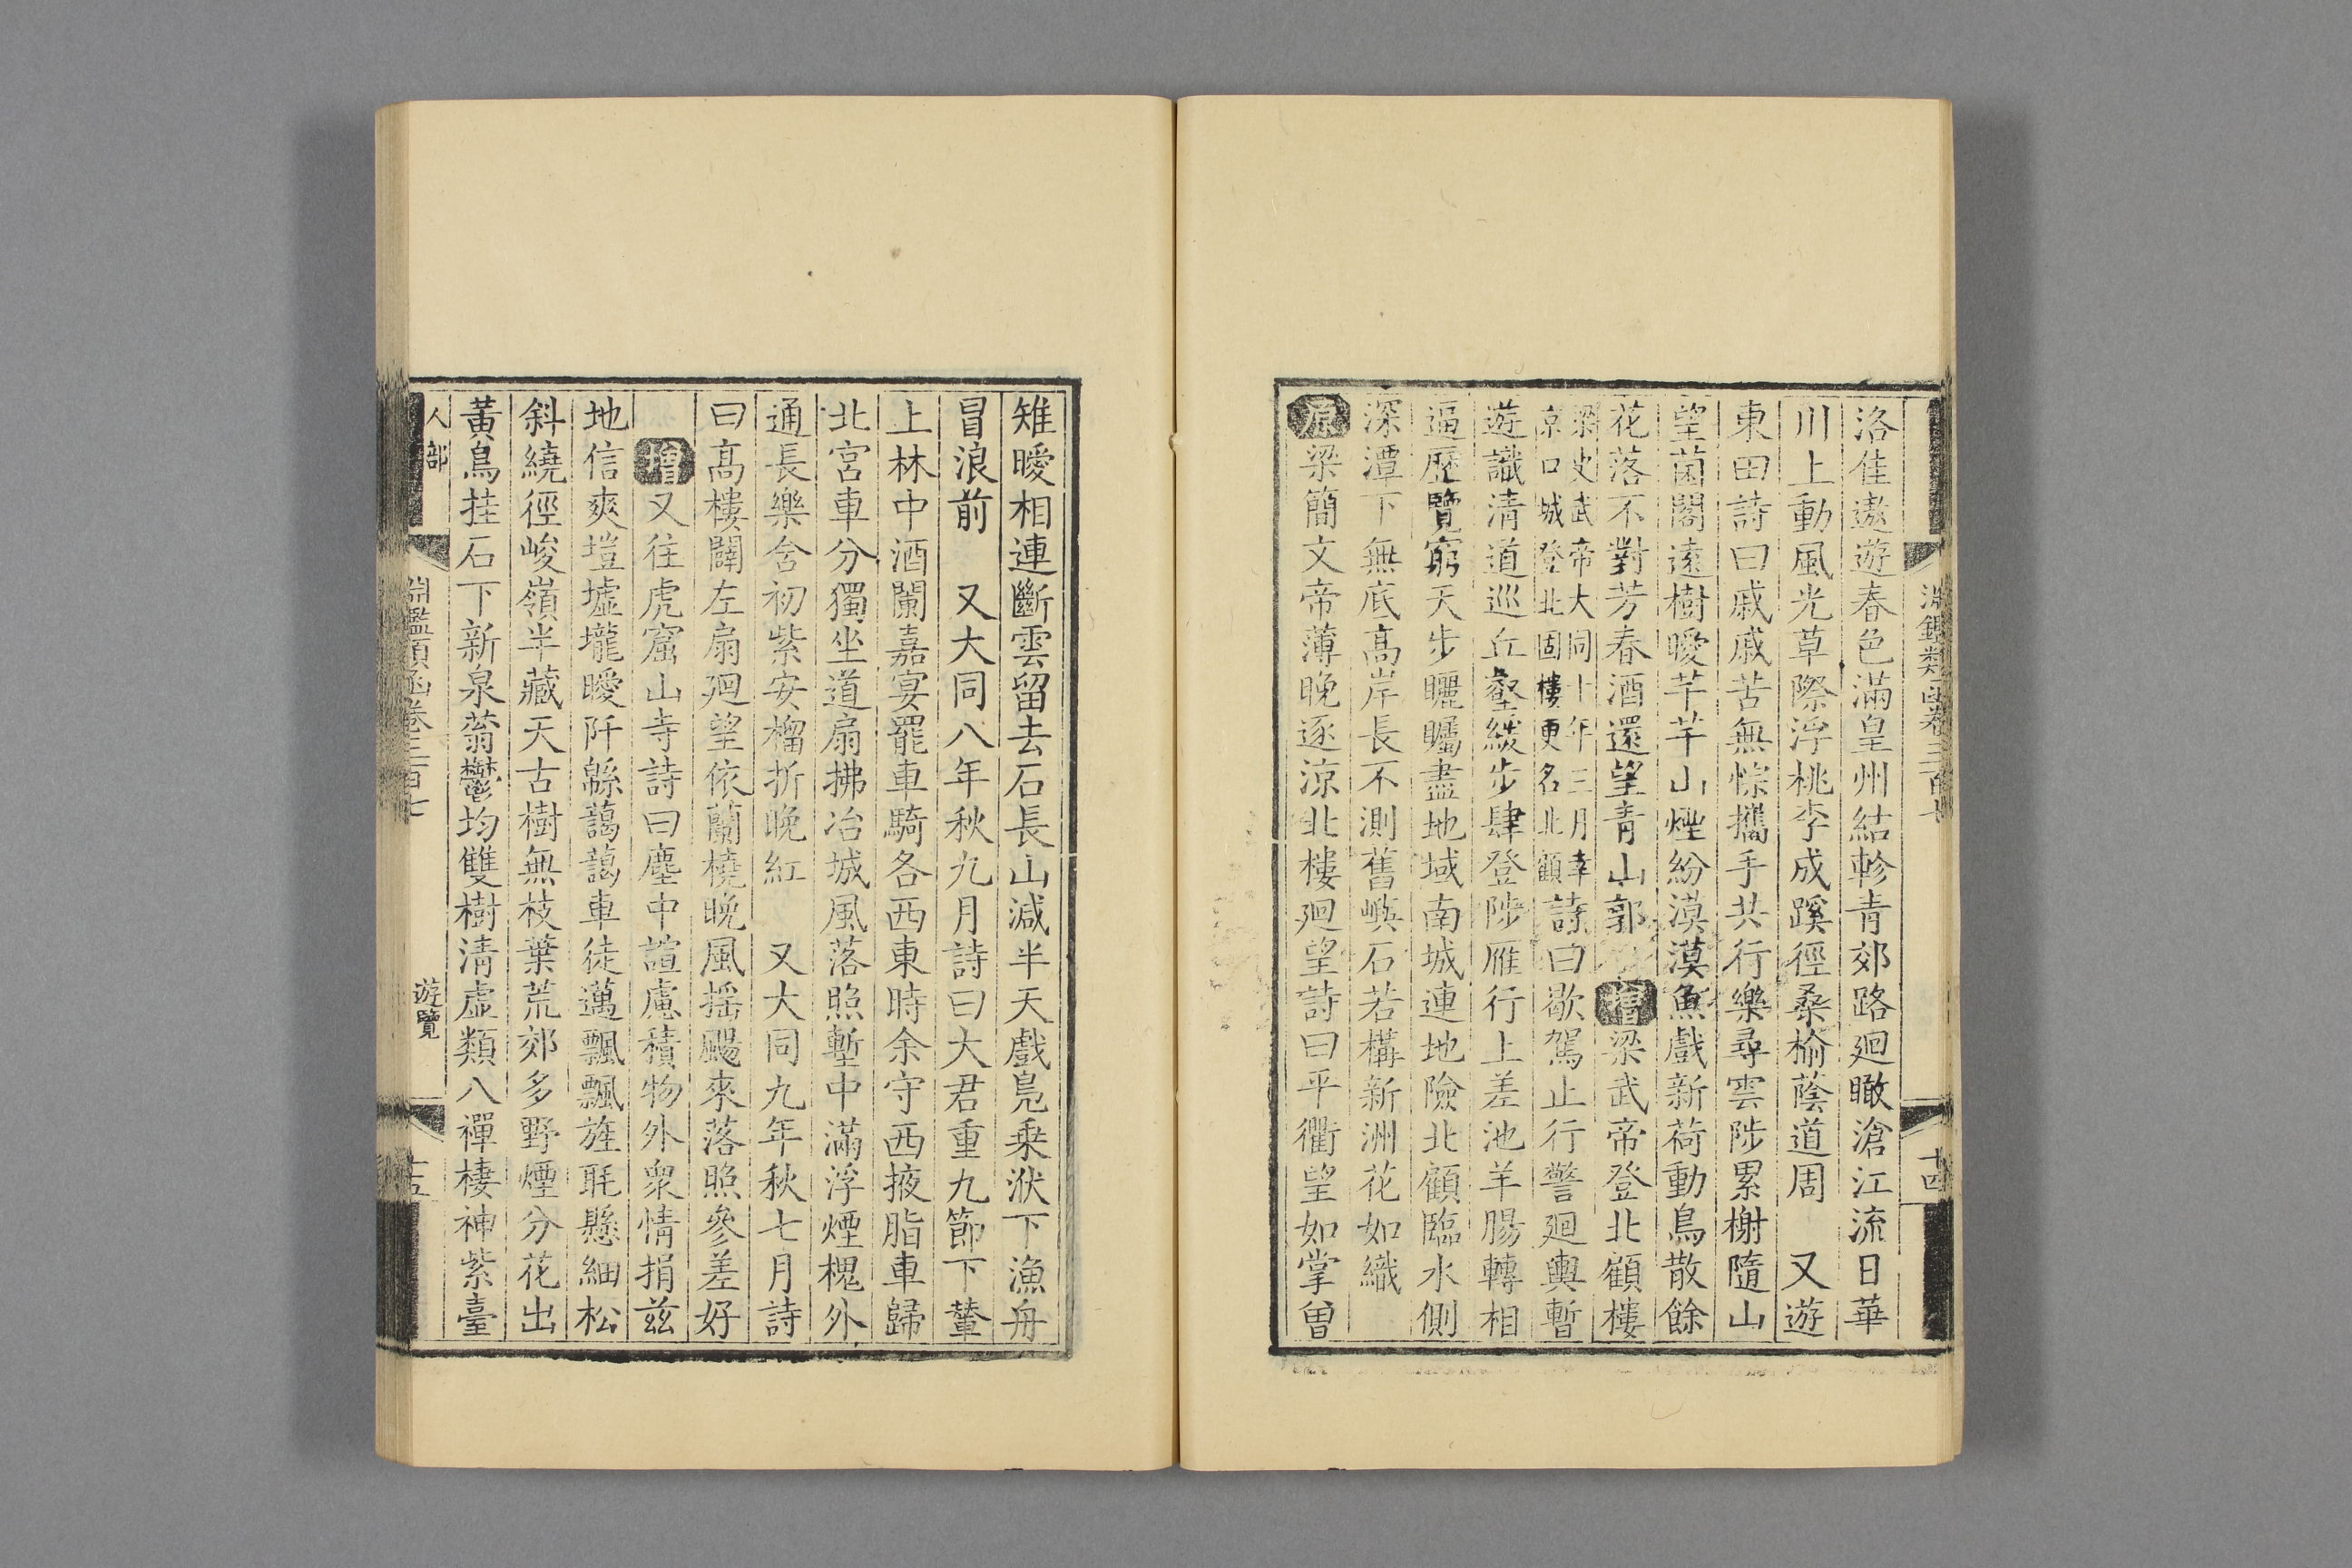 淵鑑類函卷三百七
十四
洛佳遨遊春色滿皇州結軫青郊路迴瞰滄江流日華
川上動風光草際浮桃李成蹊徑桑榆蔭道周　又遊
東田詩曰戚戚苦無悰攜手共行樂尋雲陟累榭隨山
望菌閣遠樹曖芊芊山煙紛漠漠魚戲新荷動鳥散餘
花落不對芳春酒還望青山郭　增梁武帝登北顧樓
梁史武帝大同十年三月幸
京口城登北固樓更名北顧
詩曰歇駕止行警迴輿暫
遊識清道巡丘壑緩步肆登陟雁行上差池羊腸轉相
逼歷覽窮天步矖矚盡地域南城連地險北顧臨水側
深潭下無底高岸長不測舊嶼石若構新洲花如織
原梁簡文帝薄晚逐涼北樓迴望詩曰平衢望如掌曾
雉曖相連斷雲留去石長山減半天戲鳧乗洑下漁舟
冒浪前　又大同八年秋九月詩曰大君重九節下輦
上林中酒闌嘉宴罷車騎各西東時余守西掖脂車歸
北宮車分獨坐道扇拂冶城風落照塹中滿浮煙槐外
通長樂含初紫安榴折晚紅　又大同九年秋七月詩
曰高樓闢左扇迴望依蘭橈晚風搖颺來落照參差好
增又往虎窟山寺詩曰塵中諠慮積物外衆情捐茲
地信爽塏墟壠曖阡緜藹藹車徒邁飄飄旌眊懸細松
斜繞徑峻嶺半藏天古樹無枝葉荒郊多野煙分花出
黃鳥挂石下新泉蓊鬱均雙樹清虛類八禪棲神紫臺
人部
淵鑑類函卷三百七
遊覽
十五